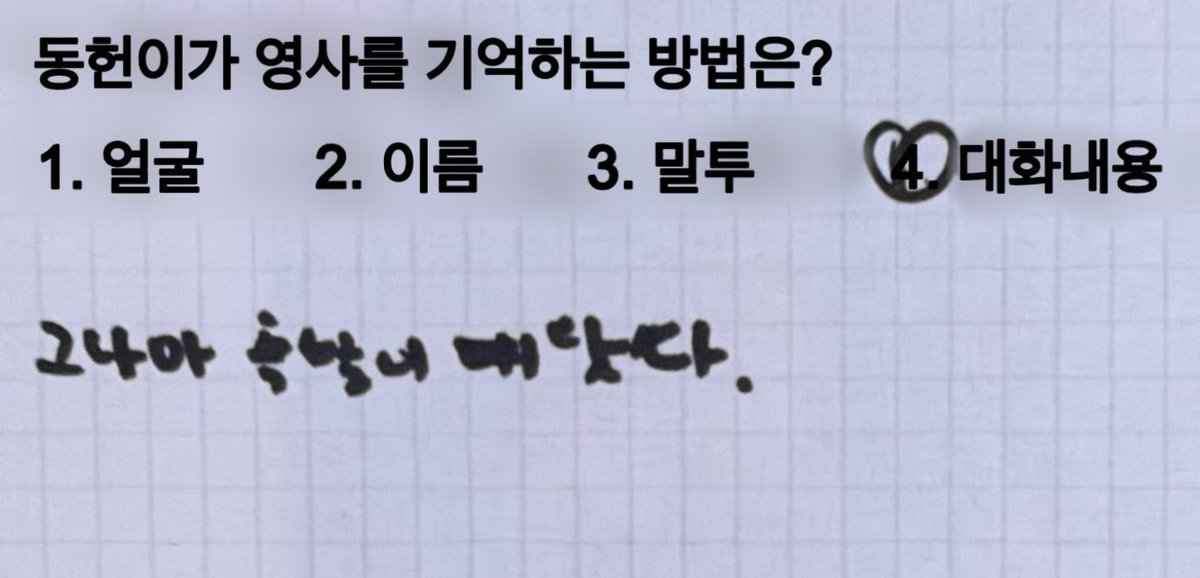 동헌이가 영사를 기억하는 방법은?
1. 얼굴 2. 이름 3. 말투 4. 대화내용
그나마